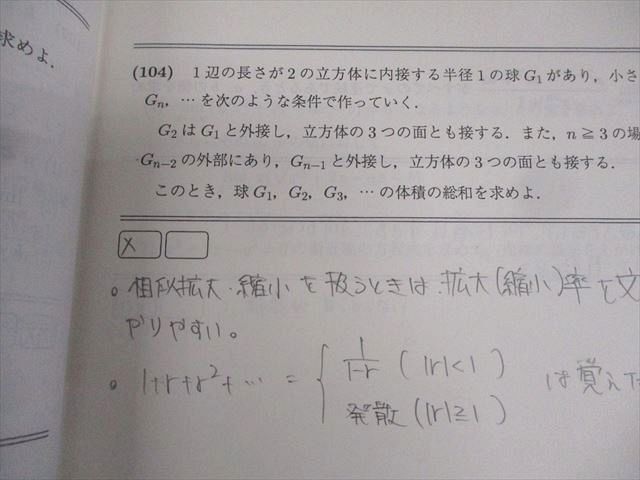 求めよ.
(104) 1辺の長さが2の立方体に内接する半径1の球G₁があり,小さ
Gₙ, … を次のような条件で作っていく.
G₂はG₁と外接し,立方体の3つの面とも接する.また,n≧3の場
Gₙ₋₂の外部にあり,Gₙ₋₁と外接し,立方体の3つの面とも接する.
このとき,球G₁, G₂, G₃, … の体積の総和を求めよ.
×
。相似拡大・縮小を扱うときは、拡大(縮小)率を文
やりやすい。
。1+r+r²+ … = { 1/(1-r) (|r|<1) は覚えた
発散 (|r|≧1)